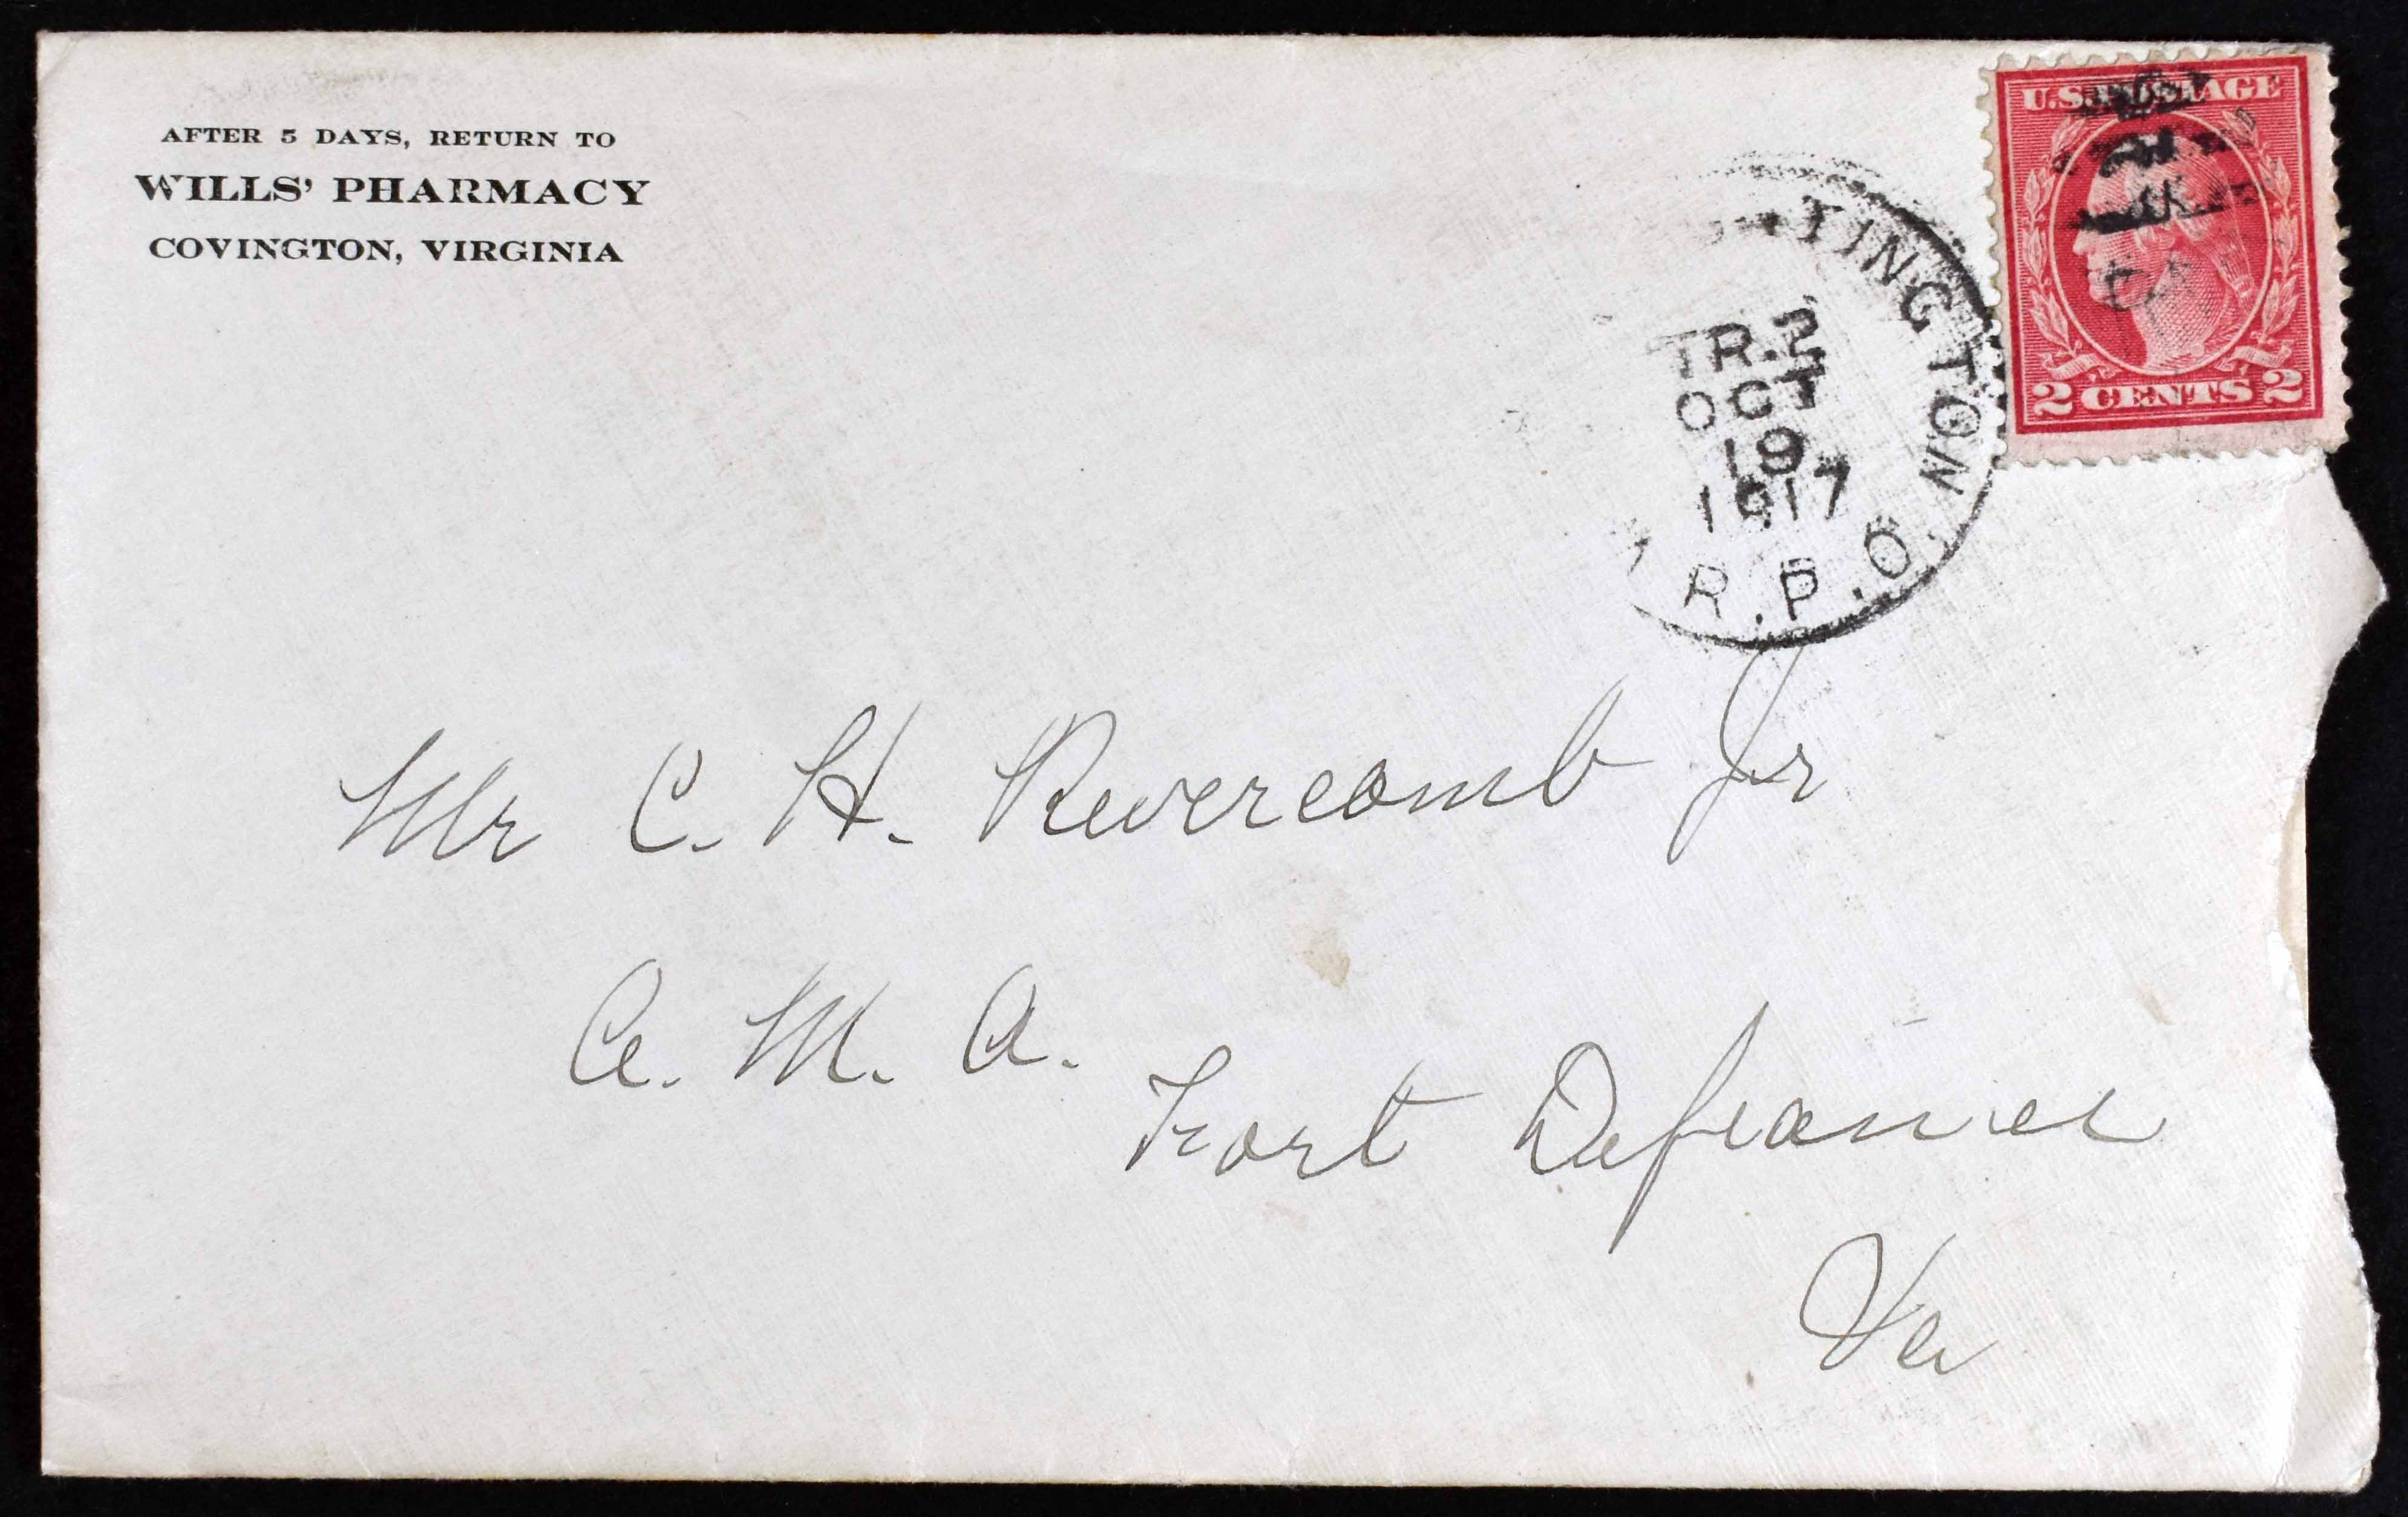 AFTER 5 DAYS, RETURN TO
WILLS' PHARMACY
COVINGTON, VIRGINIA
U.S. POSTAGE
2 CENTS 2
TINGTON
TR. 2
OCT
19
1917
R.P.O.
Mr C. H. Revercomb Jr
A. M. A.
Fort Defiance
Va